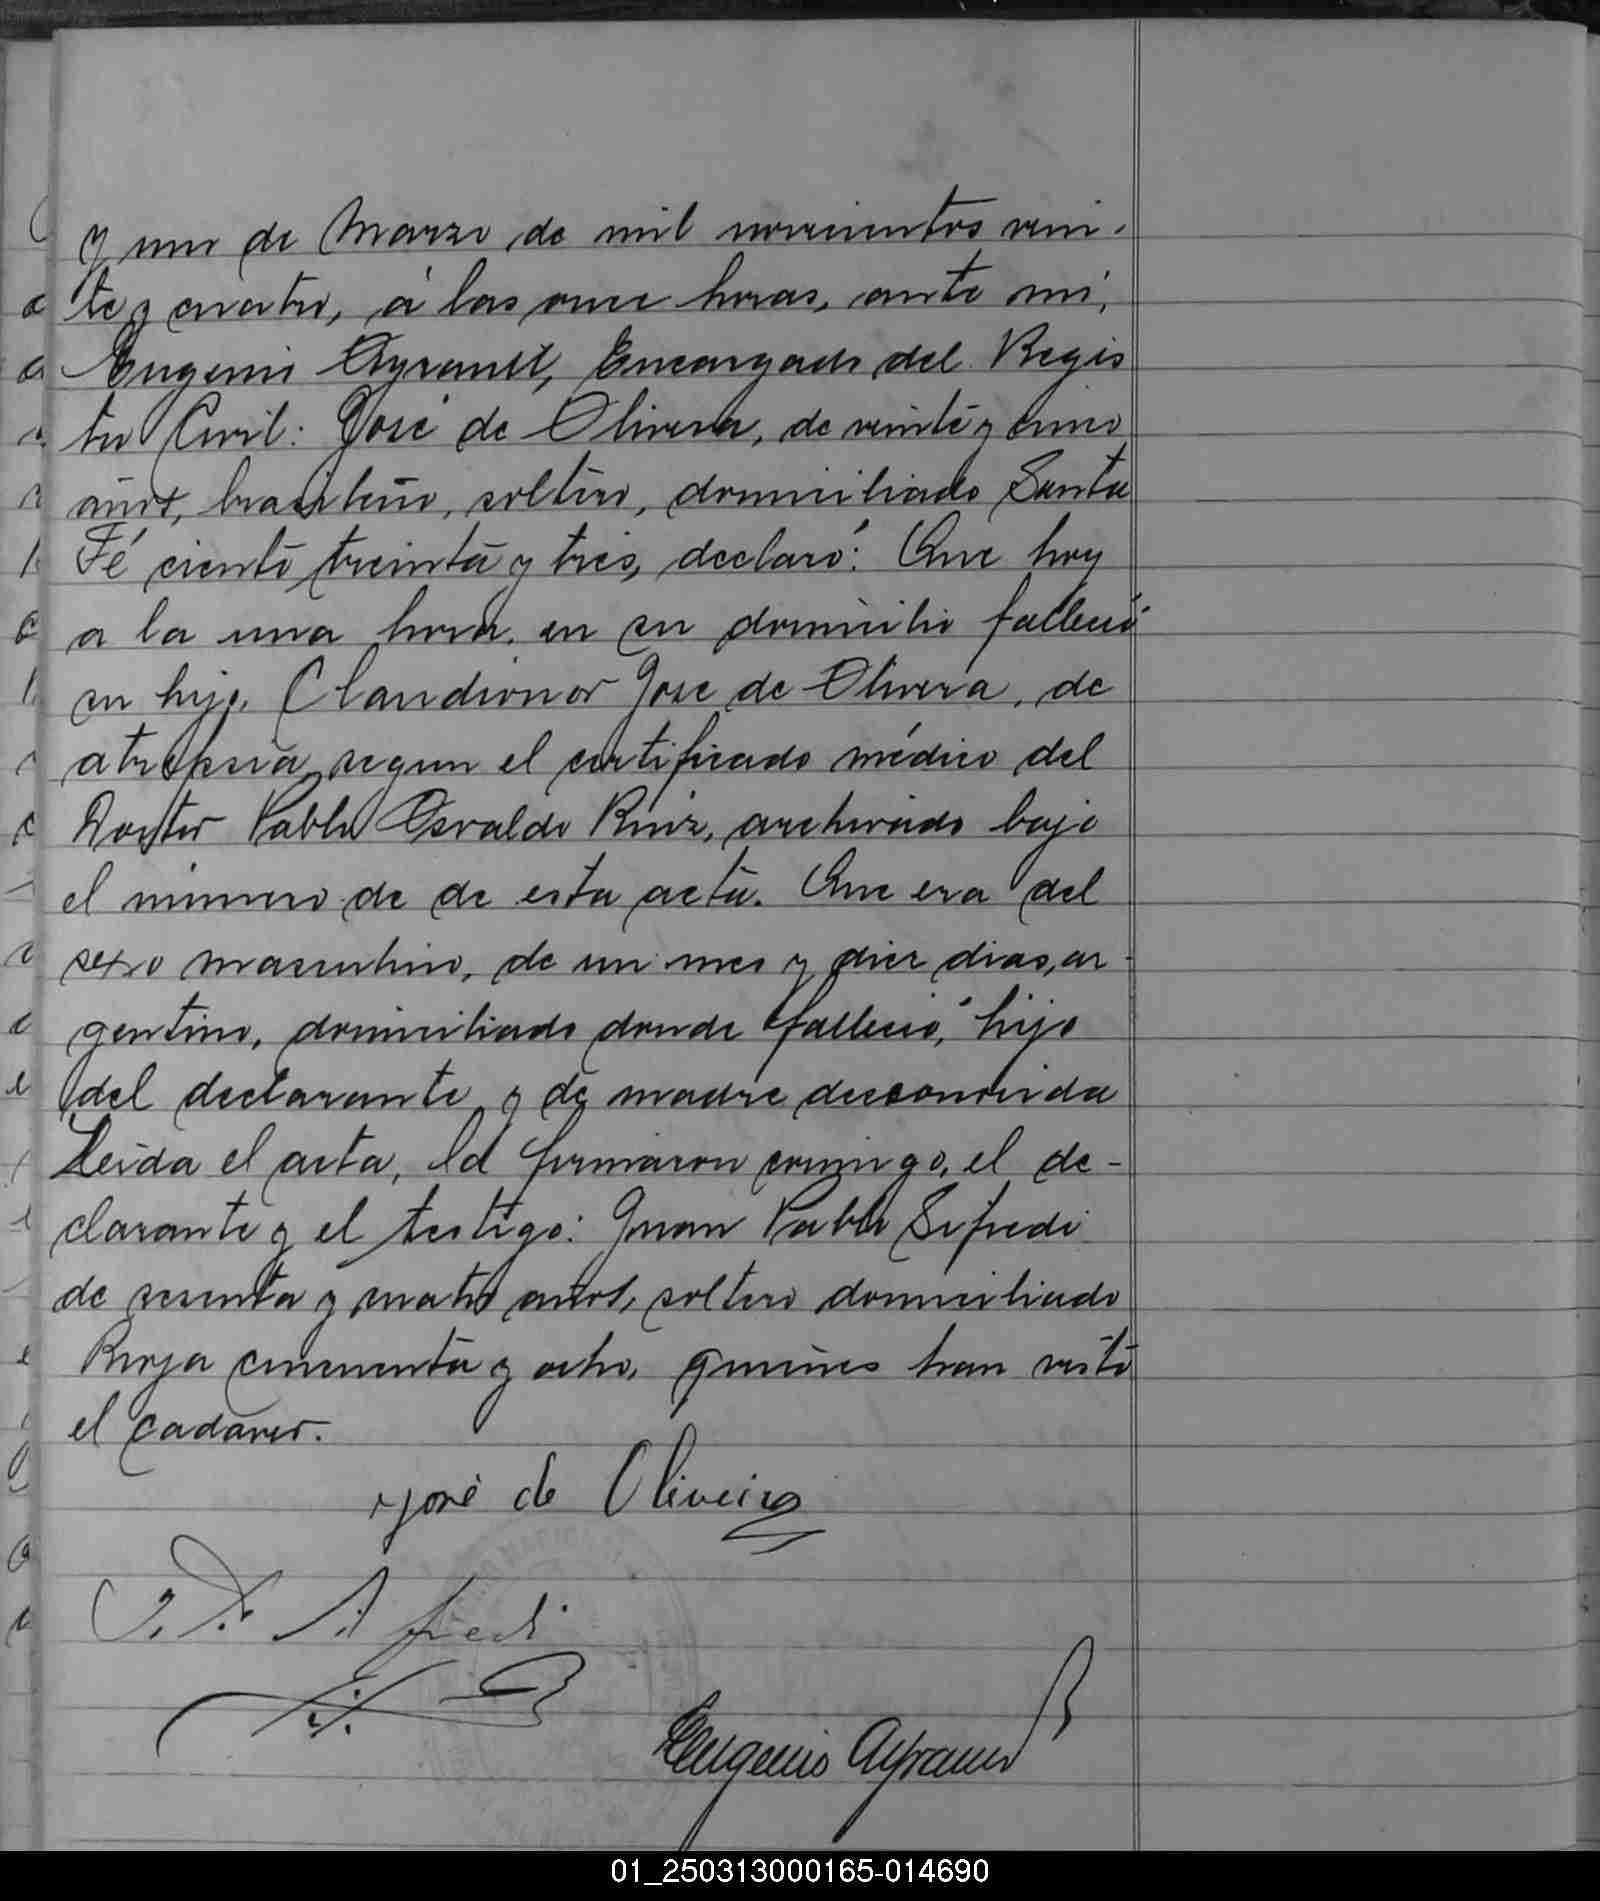 y uno de Marzo de mil novecientos vein-
te y cuatro, á las once horas, ante mi,
Eugenio Ayrault, Encargado del Regis
tro Civil: José de Olivera, de veinte y cinco
años, brasileño, soltero, domiciliado Santa
Fé ciento treinta y tres, declaró: Que hoy
a la una hora, en su domicilio falleció
su hijo, Claudionor Jose de Olivera, de
atrepsia, segun el certificado médico del
Doctor Pablo Osvaldo Ruiz, archivado bajo
el número de de esta acta. Que era del
sexo masculino, de un mes y diez dias, ar-
gentino, domiciliado donde falleció, hijo
del declarante y de madre desconocida
Leida el acta, la firmaron conmigo, el de-
clarante y el testigo: Juan Pablo Sifredi
de sesenta y cuatro años, soltero domiciliado
Rioja cincuenta y ocho, quienes han visto
el cadaver.
José de Oliveira
J. P. Sifredi
Eugenio Ayrault
01_250313000165-014690